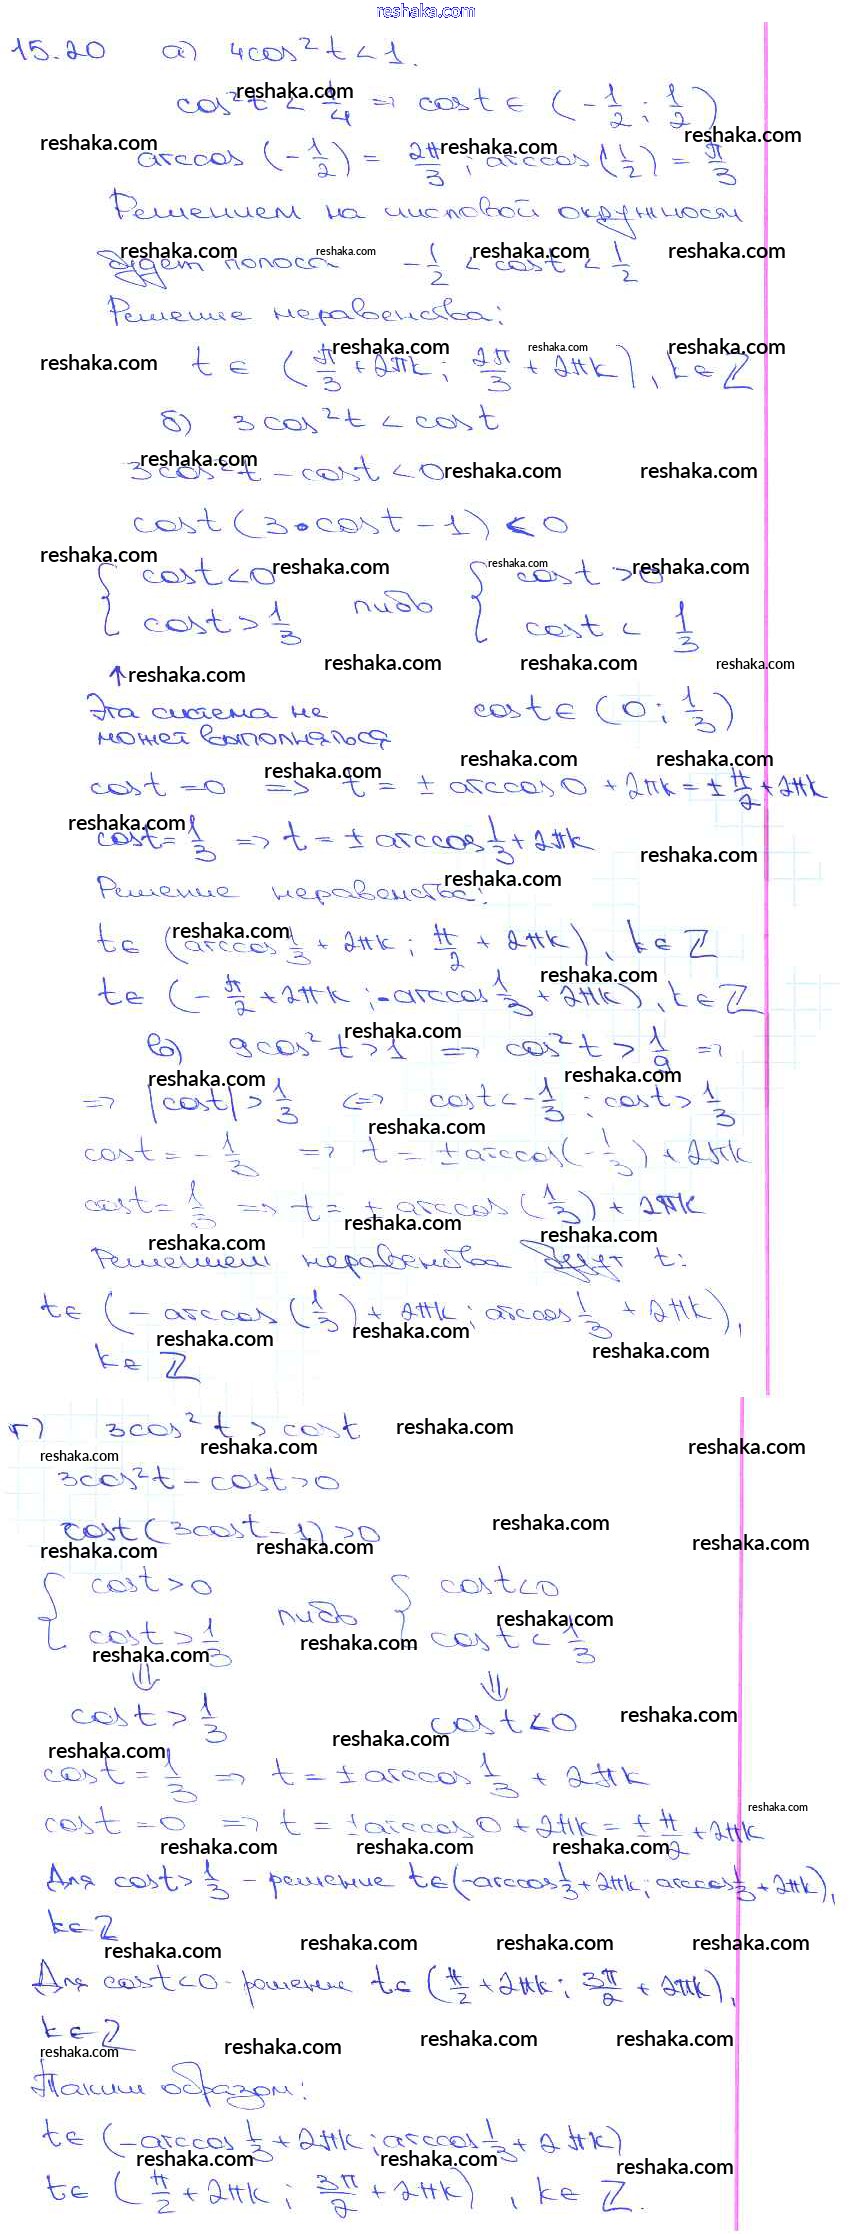 reshaka.com
15.20 а) 4cos²t < 1.
cos²t < 1/4 => cost ∈ (-1/2; 1/2)
arccos(-1/2) = 2π/3; arccos(1/2) = π/3
Решением на числовой окружности
будет полоса -1/2 < cost < 1/2
Решение неравенства:
t ∈ (π/3 + 2πk; 2π/3 + 2πk), k ∈ Z
б) 3cos²t < cost
3cos²t - cost < 0
cost(3·cost - 1) < 0
{ cost < 0 либо { cost > 0
cost > 1/3 cost < 1/3
↑
Эта система не cost ∈ (0; 1/3)
может выполняться
cost = 0 => t = ± arccos0 + 2πk = ± π/2 + 2πk
cost = 1/3 => t = ± arccos 1/3 + 2πk
Решение неравенства:
t ∈ (arccos 1/3 + 2πk; π/2 + 2πk), k ∈ Z
t ∈ (-π/2 + 2πk; -arccos 1/3 + 2πk), k ∈ Z
в) 9cos²t > 1 => cos²t > 1/9 =>
=> |cost| > 1/3 <=> cost < -1/3; cost > 1/3
cost = -1/3 => t = ± arccos(-1/3) + 2πk
cost = 1/3 => t = ± arccos(1/3) + 2πk
Решением неравенства будут t:
t ∈ (-arccos(1/3) + 2πk; arccos 1/3 + 2πk),
k ∈ Z
г) 3cos²t > cost
3cos²t - cost > 0
cost(3cost - 1) > 0
{ cost > 0 либо { cost < 0
cost > 1/3 cost < 1/3
⇓ ⇓
cost > 1/3 cost < 0
cost = 1/3 => t = ± arccos 1/3 + 2πk
cost = 0 => t = ± arccos0 + 2πk = ± π/2 + 2πk
Для cost > 1/3 - решение t ∈ (-arccos 1/3 + 2πk; arccos 1/3 + 2πk),
k ∈ Z
Для cost < 0 - решение t ∈ (π/2 + 2πk; 3π/2 + 2πk),
k ∈ Z
Таким образом:
t ∈ (-arccos 1/3 + 2πk; arccos 1/3 + 2πk)
t ∈ (π/2 + 2πk; 3π/2 + 2πk), k ∈ Z.